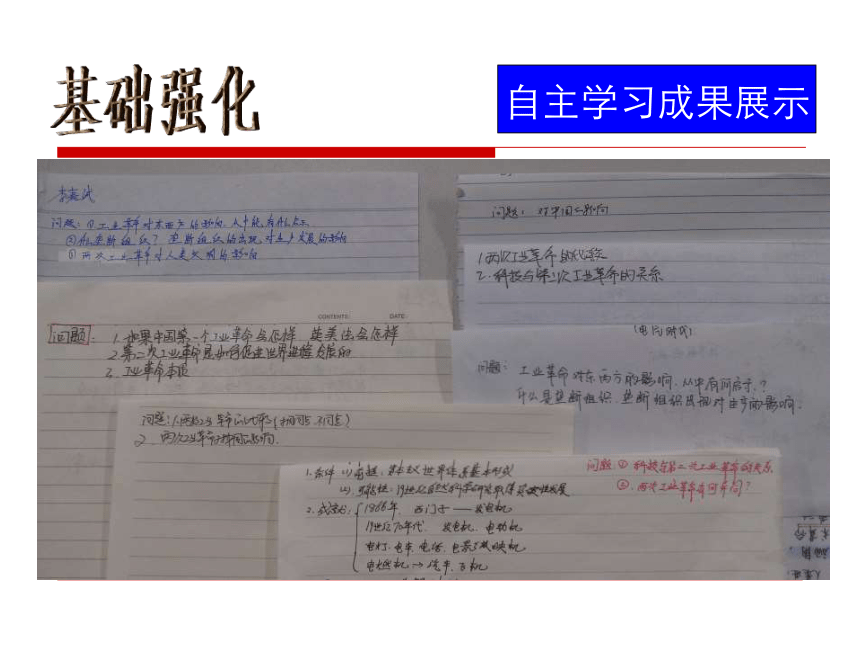 基础强化
自主学习成果展示
问题：①工业革命对东西方的影响，从中能有什么启示
②什么垄断组织？垄断组织的出现，对生产发展的影响
③两次工业革命对人类文明的影响
问题：对中国的影响
1.两次工业革命的比较
2.科技与第二次工业革命的关系
CONTENTS: DATE:
问题：1.如果中国第一个工业革命会怎样 英美法会怎样
2.第二次工业革命是如何促进世界进程发展的
3.工业革命本质
(电气时代)
问题：工业革命对东西方的影响，从中有何启示？
什么是垄断组织，垄断组织出现对生产的影响。
问题：1.两次工业革命的比较（相同点、不同点）
2.两次工业革命对中国的影响.
1.条件 (1)前提：资本主义世界体系基本形成
(2)可能性：19世纪自然科学研究取得突破性发展
2.成就：1866年 西门子——发电机
19世纪70年代 发电机、电动机
电灯、电车、电话、电影放映机
内燃机→汽车、飞机
问题：①科技与第二次工业革命的关系
②两次工业革命有何异同？